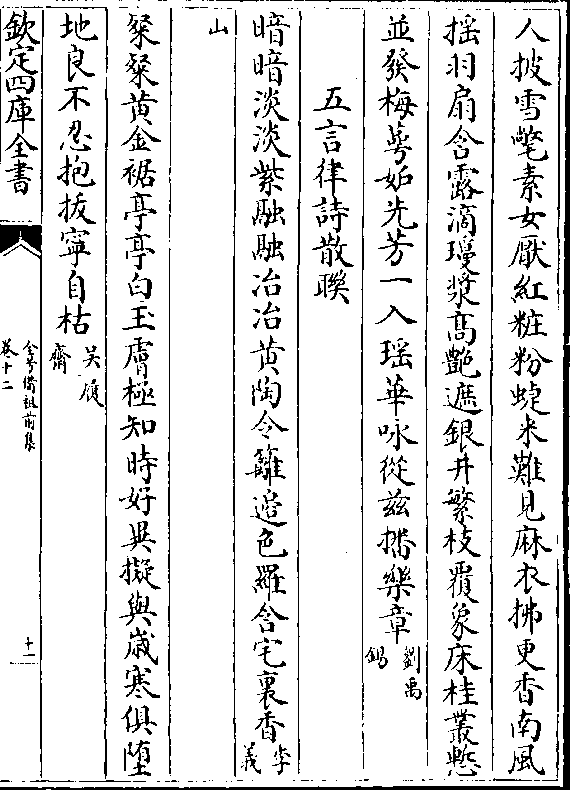 人披雪氅素女厭紅粧粉蜨來難見麻衣拂更香南風
揺羽扇含露滴瓊漿髙艶遮銀井繁枝覆象床桂叢慙
並發梅萼妬先芳一入瑶華咏從兹播樂章劉禹
錫
五言律詩散聮
暗暗淡淡紫融融冶冶黄陶令籬邉色羅含宅裏香李
義
山
粲粲黄金裾亭亭白玉膚極知時好異擬與嵗寒俱墮
地良不忍抱枝寧自枯吴履
齋
欽定四庫全書
全芳備祖前集
卷十二
十一